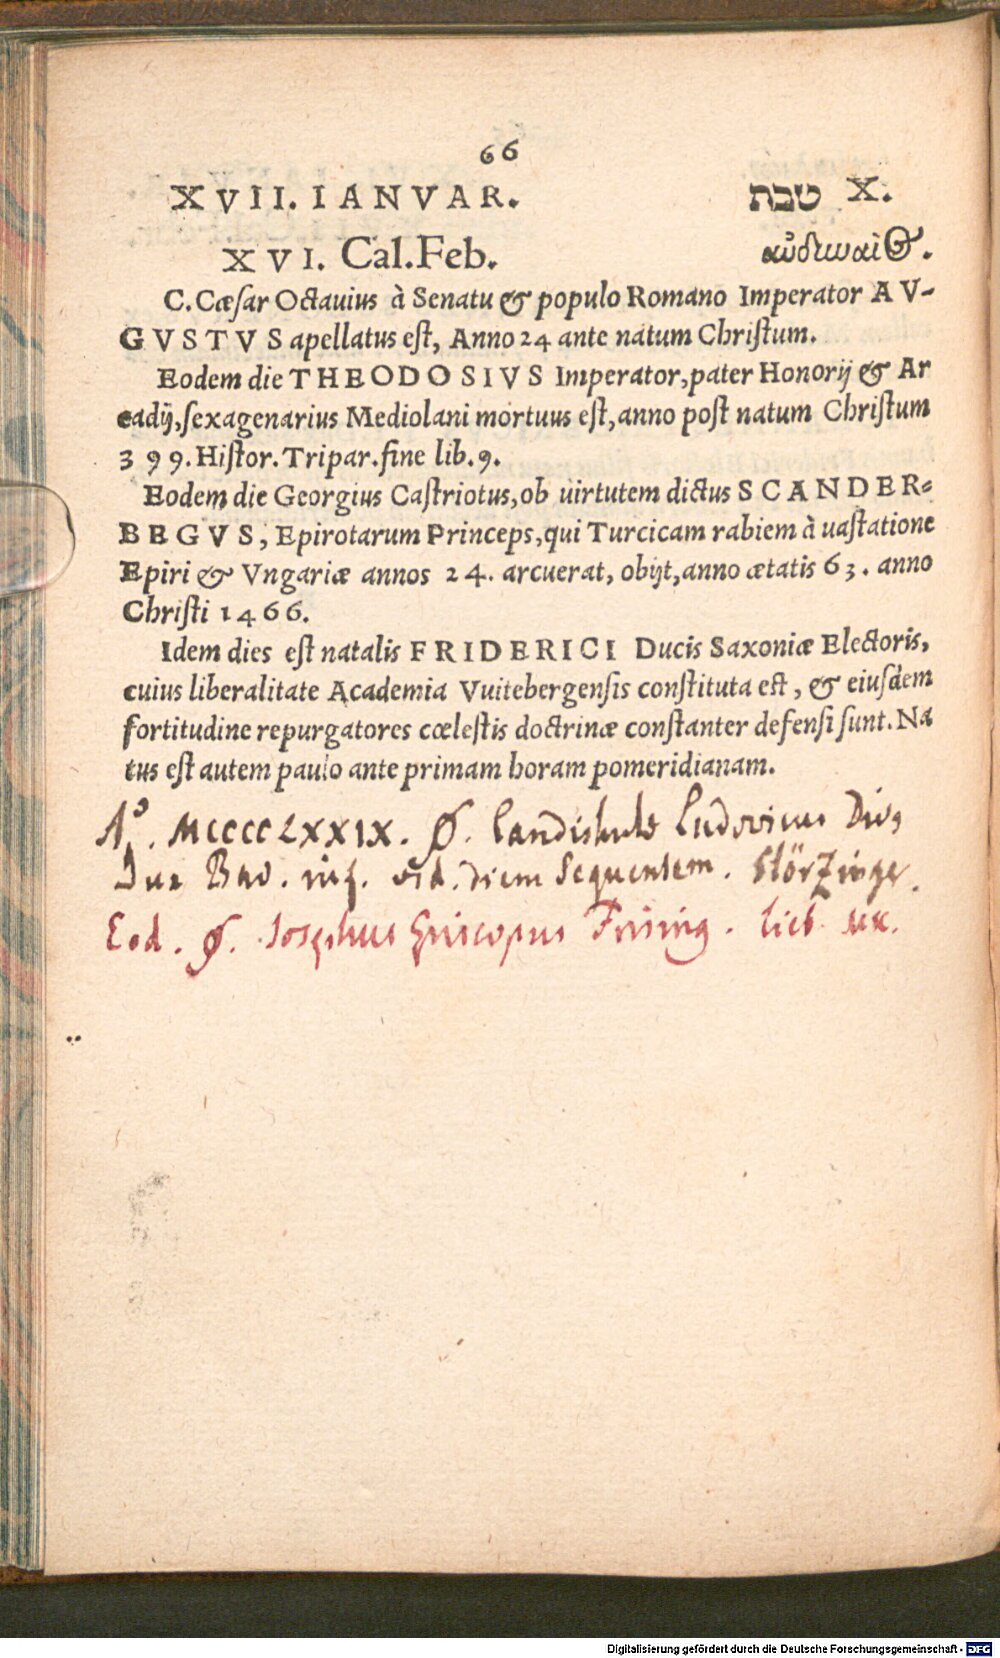 66
XVII. IANVAR. טבת X.
XVI. Cal. Feb.
C. Cæsar Octauius à Senatu & populo Romano Imperator AV-
GVSTVS apellatus est, Anno 24 ante natum Christum.
Eodem die THEODOSIVS Imperator, pater Honorij & Ar
cadij, sexagenarius Mediolani mortuus est, anno post natum Christum
399. Histor. Tripar. fine lib. 9.
Eodem die Georgius Castriotus, ob uirtutem dictus SCANDER-
BEGVS, Epirotarum Princeps, qui Turcicam rabiem à uastatione
Epiri & Vngariæ annos 24. arcuerat, obijt, anno ætatis 63. anno
Christi 1466.
Idem dies est natalis FRIDERICI Ducis Saxoniæ Electoris,
cuius liberalitate Academia Vuitebergensis constituta est, & eiusdem
fortitudine repurgatores cœlestis doctrinæ constanter defensi sunt. Na
tus est autem paulo ante primam horam pomeridianam.
Aº. MCCCCLXXIX. Landishute Ludovicus Dives
Dux Bav. inf. vid. diem sequentem.
Eod. Josephus Episcopus Frising.
Digitalisierung gefördert durch die Deutsche Forschungsgemeinschaft - DFG